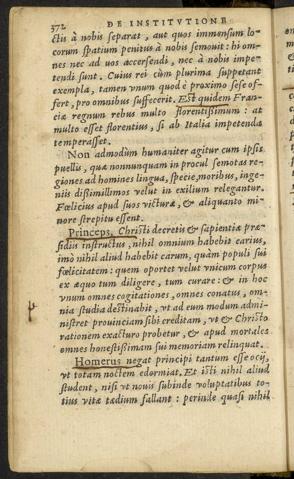 372 DE INSTITVTIONE
ctis à nobis separat, aut quos immensum lo-
corum spatium penitus à nobis semouit: hi om-
nes nec ad uos accersendi, nec à nobis impe-
tendi sunt. Cuius rei cùm plurima suppetant
exempla, tamen vnum quod è proximo sese of-
fert, pro omnibus suffecerit. Est quidem Fran-
ciæ regnum rebus multo florentissimum: at
multo esset florentius, si ab Italia impetenda
temperasset.
Non admodùm humaniter agitur cum ipsis
puellis, quæ nonnunquam in procul semotas re-
giones ad homines lingua, specie, moribus, inge-
niis dissimillimos velut in exilium relegantur.
Fœlicius apud suos victuræ, & aliquanto mi-
nore strepitu essent.
Princeps, Christi decretis & sapientiæ præ-
sidiis instructus, nihil omnium habebit carius,
imò nihil aliud habebit carum, quàm populi sui
fœlicitatem: quem oportet velut vnicum corpus
ex æquo tum diligere, tum curare: & in hoc
vnum omnes cogitationes, omnes conatus, om-
nia studia destinabit, vt ad eum modum admi-
nistret prouinciam sibi creditam, vt & Christo
rationem exacturo probetur, & apud mortales
omnes honestissimam sui memoriam relinquat.
Homerus negat principi tantum esse ocij,
vt totam noctem edormiat. Et isti nihil aliud
student, nisi vt nouis subinde voluptatibus to-
tius vitæ tædium fallant: perinde quasi nihil